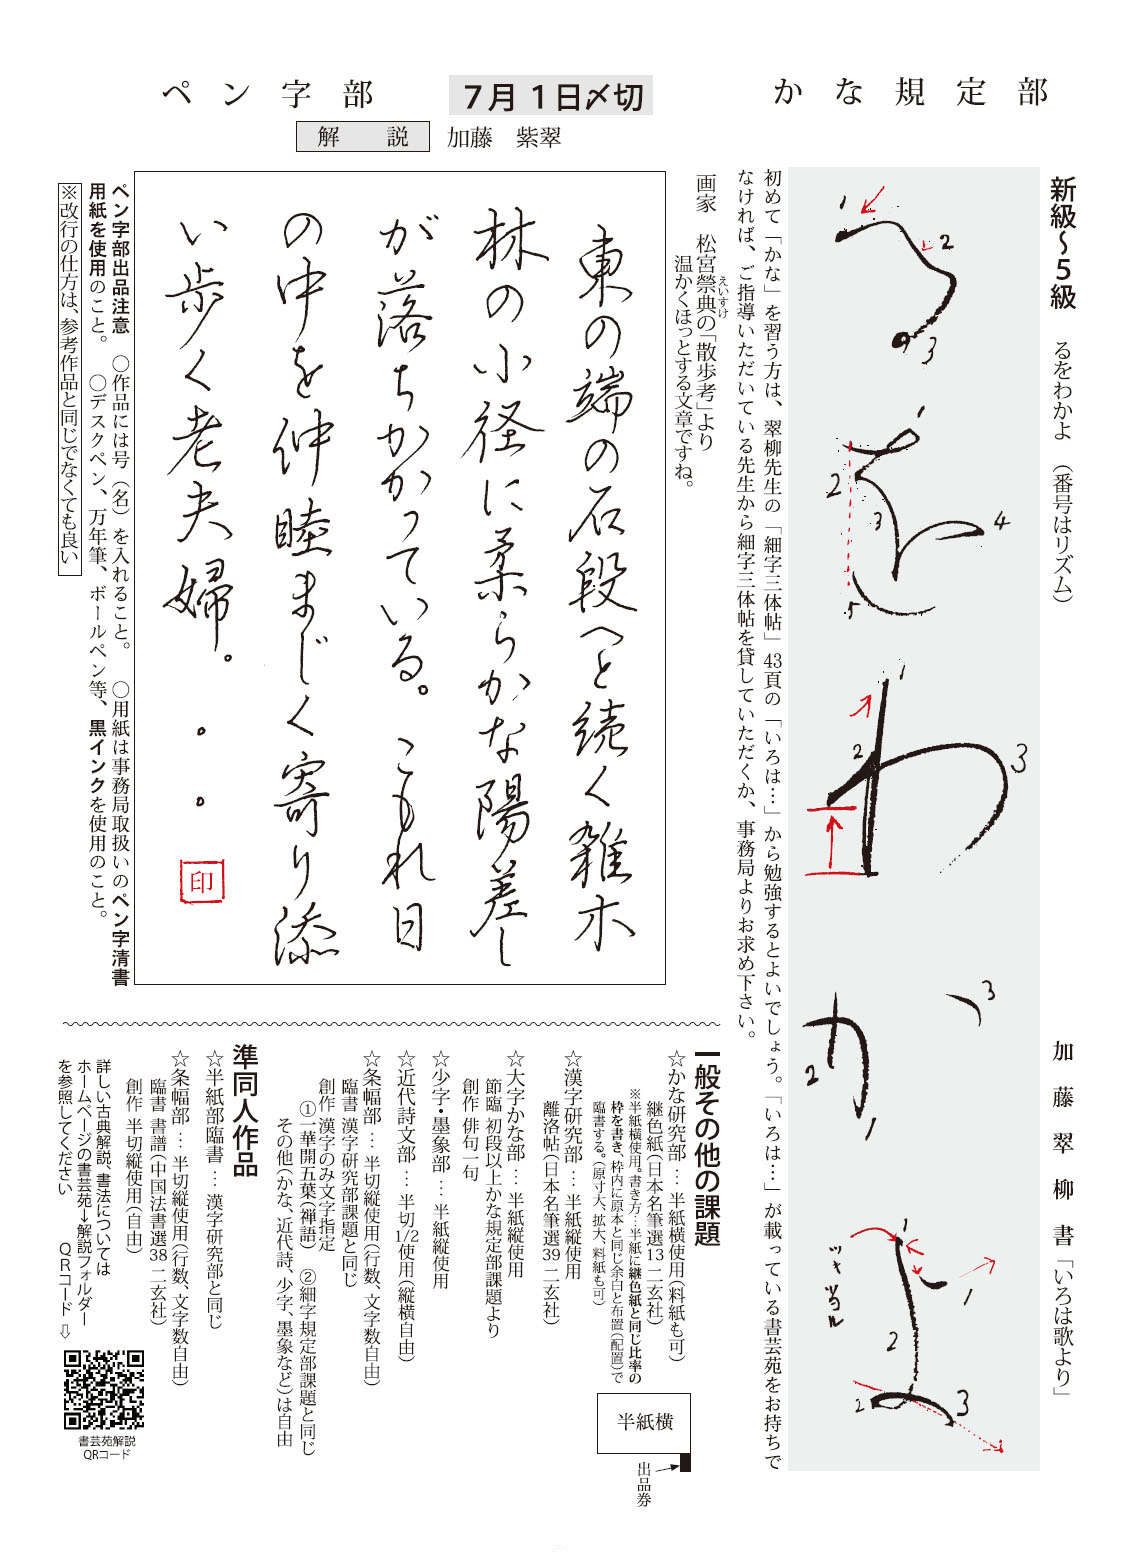 かな規定部
7月1日〆切
ペン字部
解 説 加藤 紫翠
新級〜5級 るをわかよ (番号はリズム)
加藤翠柳書「いろは歌より」
る
1
2
3
を
1
2
3
4
5
わ
1
2
3
か
1
2
3
よ
1
2
ツキ当ル
2
3
初めて「かな」を習う方は、翠柳先生の「細字三体帖」43頁の「いろは…」から勉強するとよいでしょう。「いろは…」が載っている書芸苑をお持ちで
なければ、ご指導いただいている先生から細字三体帖を貸していただくか、事務局よりお求め下さい。
画家 松宮榮典の「散歩考」より
えいすけ
温かくほっとする文章ですね。
東の端の石段へと続く雑木
林の小径に柔らかな陽差し
が落ちかかっている。こもれ日
の中を仲睦まじく寄り添
い歩く老夫婦。。。
印
ペン字部出品注意 〇作品には号(名)を入れること。 〇用紙は事務局取扱いのペン字清書
用紙を使用のこと。 〇デスクペン、万年筆、ボールペン等、黒インクを使用のこと。
※改行の仕方は、参考作品と同じでなくても良い
一般その他の課題
☆かな研究部…半紙横使用(料紙も可)
継色紙(日本名筆選13 二玄社)
※半紙横使用。書き方…半紙に継色紙と同じ比率の
枠を書き、枠内に原本と同じ余白と布置(配置)で
臨書する。(原寸大、拡大、料紙も可)
半紙横
出品券
☆漢字研究部…半紙縦使用
離洛帖(日本名筆選39 二玄社)
☆大字かな部…半紙縦使用
節臨 初段以上かな規定部課題より
創作 俳句一句
☆少字・墨象部…半紙縦使用
☆近代詩文部…半切1/2使用(縦横自由)
☆条幅部…半切縦使用(行数、文字数自由)
臨書 漢字研究部課題と同じ
創作 漢字のみ文字指定
①一華開五葉(禅語) ②細字規定部課題と同じ
その他(かな、近代詩、少字、墨象など)は自由
準同人作品
☆半紙部臨書…漢字研究部と同じ
☆条幅部…半切縦使用(行数、文字数自由)
臨書 書譜(中国法書選38 二玄社)
創作 半切縦使用(自由)
詳しい古典解説、書法については
ホームページの書芸苑→解説フォルダー
を参照してください QRコード⇨
書芸苑解説
QRコード